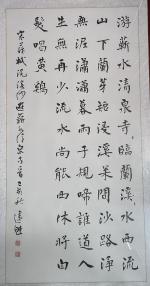 游蘄水清泉寺，臨蘭溪水西流
山下蘭芽短浸溪松間沙路淨
無泥瀟瀟暮雨子規啼誰道人
生無再少流水尚能西休將白
髮唱黃鷄
宋蘇軾浣溪沙遊蘄水清泉寺